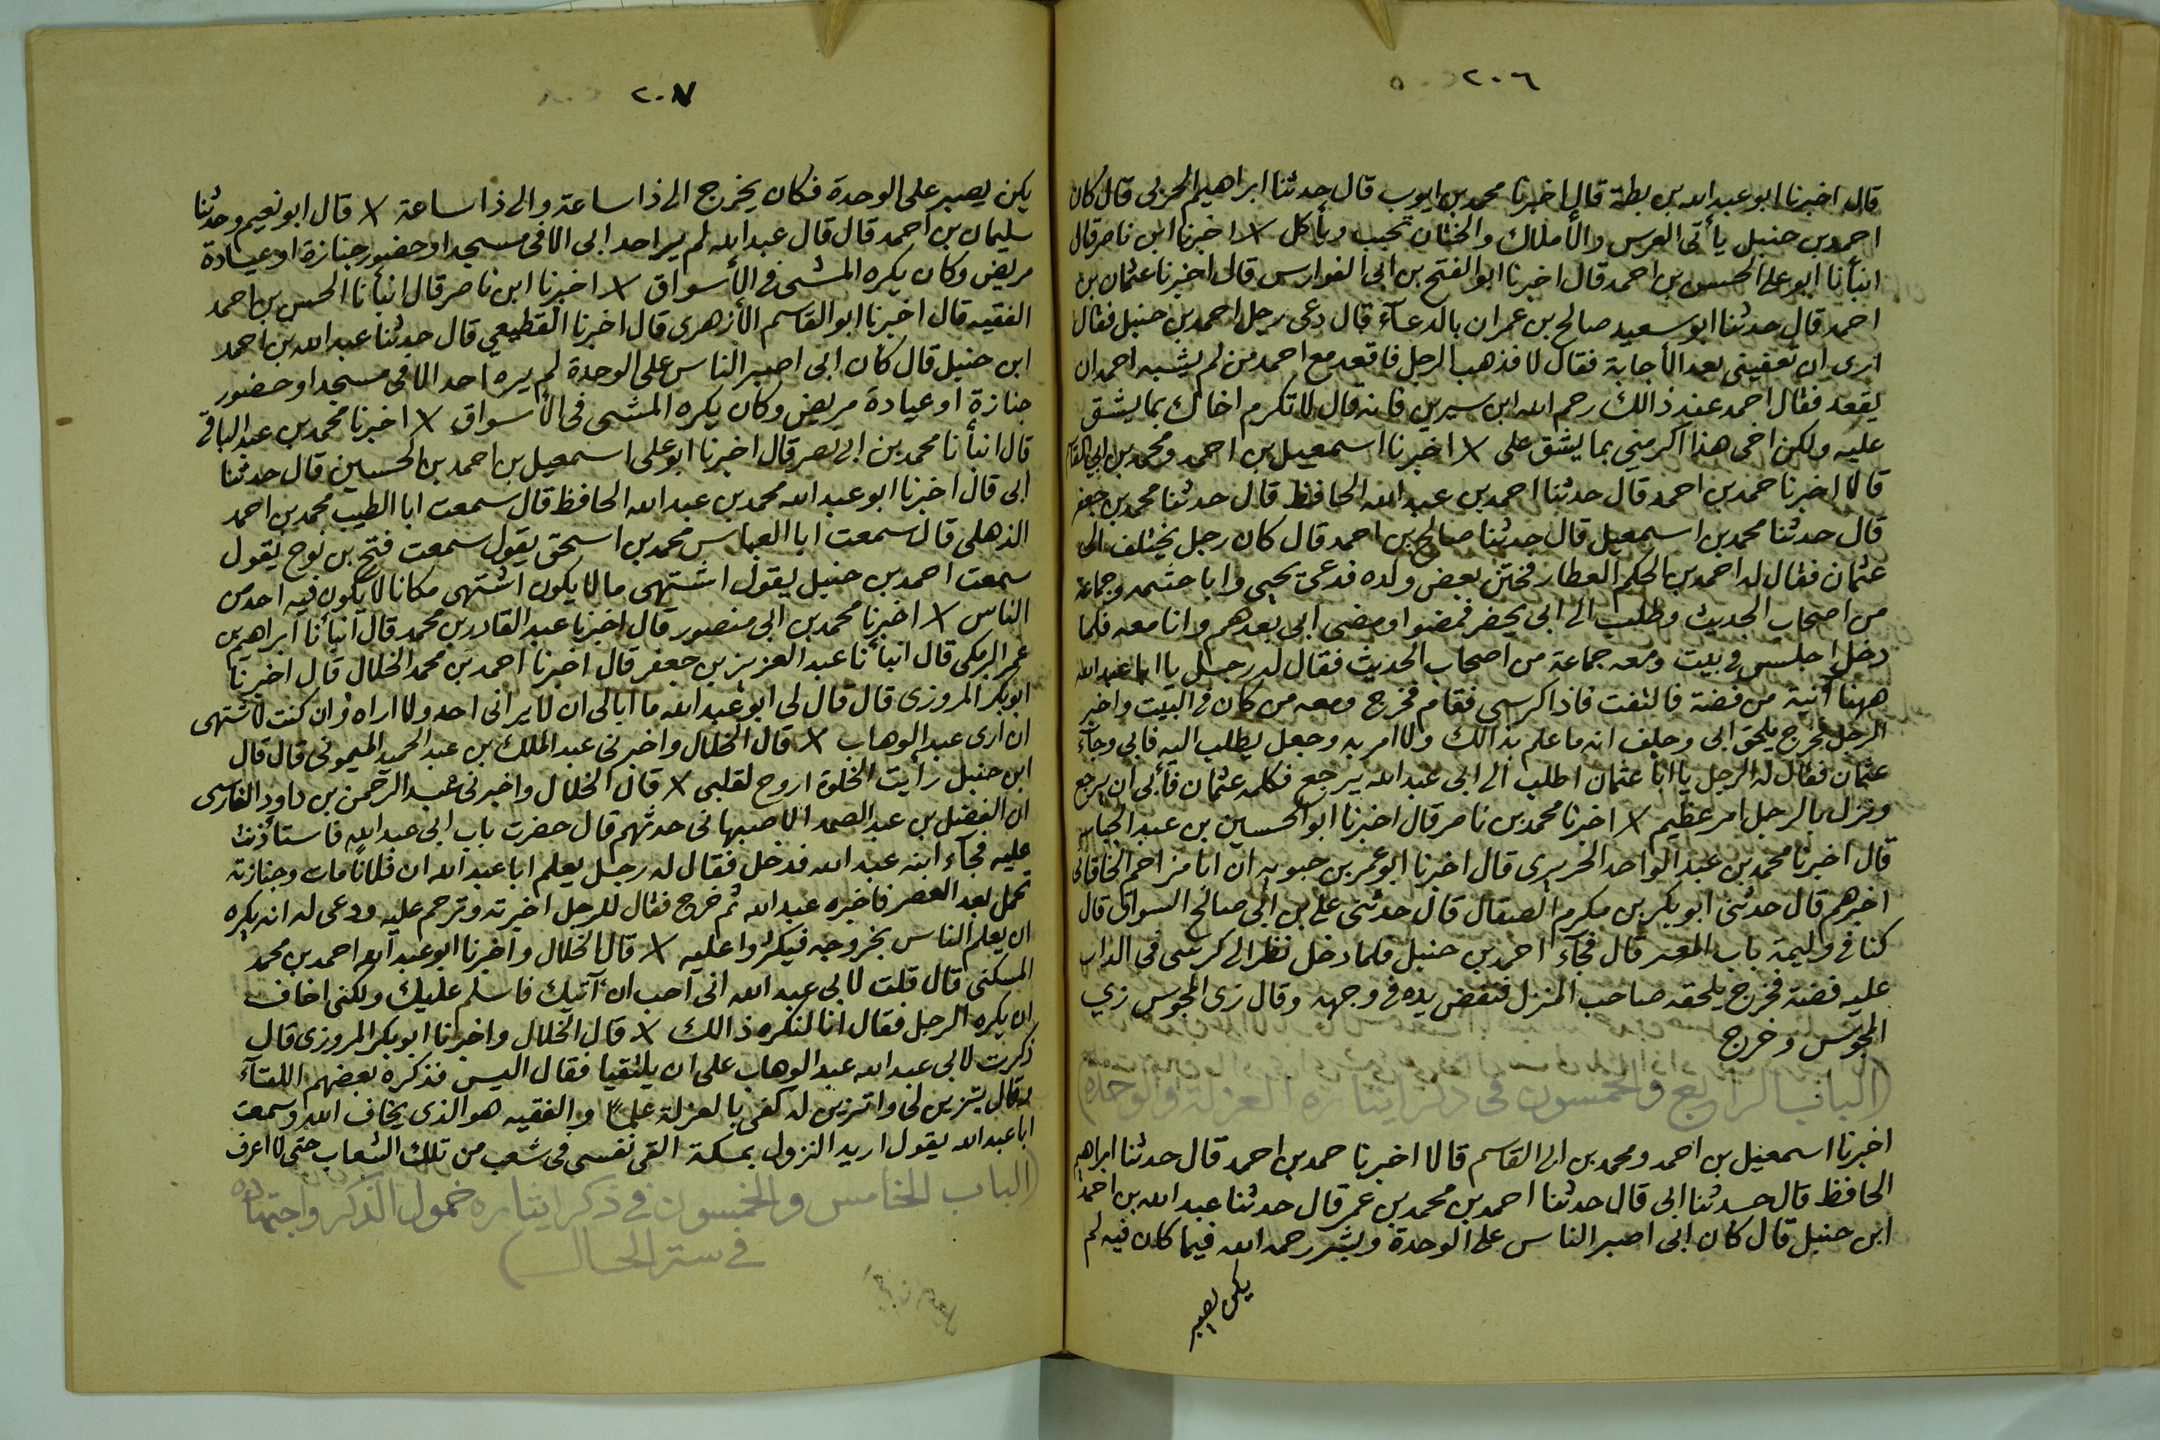 ٢٠٦
قال اخبرنا ابو عبد الله بن بطة قال اخبرنا محمد بن ايوب قال حدثنا ابراهيم الحربى قال كان
احمد بن حنبل يأتى العرس والأملاك والختان يجيب ويأكل اخبرنا ابن ناصر قال
انبأنا ابو على الحسن بن احمد قال اخبرنا ابو الفتح بن ابى الفوارس قال اخبرنا عثمان بن
احمد قال حدثنا ابو سعيد صالح بن عمران بالدعآء قال دعى رجل احمد بن حنبل فقال
ارى ان تعفينى بعد الأجابة فقال لا فذهب الرجل فاقعد مع احمد من لم يشبه احمد ان
يقعد فقال احمد عند ذالك رحم الله ابن سيرين فانه قال لا تكرم اخاك بما يشق
عليه ولكن اخى هذا اكرمنى بما يشق على اخبرنا اسمعيل بن احمد ومحمد بن ابى القاسم
قالا اخبرنا حمد بن احمد قال حدثنا احمد بن عبد الله الحافظ قال حدثنا محمد بن جعفر
قال حدثنا محمد بن اسمعيل قال حدثنا صالح بن احمد قال كان رجل يختلف الى
عثمان فقال له احمد بن الحكم العطار فختن بعض ولده فدعى يحيى وابا خثيمه وجماعة
من اصحاب الحديث وطلب الى ابى يحضر فمضوا ومضى ابى بعدهم وانا معه فلما
دخل اجلس فى بيت ومعه جماعة من اصحاب الحديث فقال له رجل يا ابا عبد الله
ههنا آنية من فضة فالتفت فاذا كرسى فقام فخرج ومعه من كان فى البيت واخبر
الرجل فخرج يلحق ابى وحلف انه ما علم بذالك ولا امر به وجعل يطلب اليه فابى وجآء
عثمان فقال له الرجل يا ابا عثمان اطلب الى ابى عبد الله يرجع فكلمه عثمان فأبى ان يرجع
ونزل بالرجل امر عظيم اخبرنا محمد بن ناصر قال اخبرنا ابو الحسين بن عبد الجبار
قال اخبرنا محمد بن عبد الواحد الحريرى قال اخبرنا ابو عمر بن حيويه ان ابا مزاحم الخاقانى
اخبرهم قال حدثنى ابو بكر بن مكرم الصفال قال حدثنى على بن ابى صالح السواق قال
كنا فى وليمة باب المعبر قال فجآء احمد بن حنبل فلما دخل نظر الى كرسى فى الدار
عليه فضة فخرج يلحقه صاحب المنزل فنفض يده فى وجهه وقال زى المجوس زي
المجوس وخرج
(الباب الرابع والخمسون فى ذكر ايثاره العزلة والوحدة)
اخبرنا اسمعيل بن احمد ومحمد بن ابى القاسم قالا اخبرنا حمد بن احمد قال حدثنا ابراهيم
الحافظ قال حدثنا ابى قال حدثنا احمد بن محمد بن عمر قال حدثنا عبد الله بن احمد
ابن حنبل قال كان ابى اصبر الناس على الوحدة وبشر رحمه الله فيما كان فيه لم
يكن يصبر
٢٠٧
يكن يصبر على الوحدة فكان يخرج الى ذا ساعة والى ذا ساعة قال ابو نعيم وحدثنا
سليمان بن احمد قال قال عبد الله لم ير احد ابى الا فى مسجد او حضور جنازة او عيادة
مريض وكان يكره المشى فى الأسواق اخبرنا ابن ناصر قال انبأنا الحسن بن احمد
الفقيه قال اخبرنا ابو القاسم الأزهرى قال اخبرنا القطيعي قال حدثنا عبد الله بن احمد
ابن حنبل قال كان ابى اصبر الناس على الوحدة لم يره احد الا فى مسجد او حضور
جنازة او عيادة مريض وكان يكره المشى فى الأسواق اخبرنا محمد بن عبد الباقى
قال انبأنا محمد بن ابى نصر قال اخبرنا ابو على اسمعيل بن احمد بن الحسين قال حدثنا
ابى قال اخبرنا ابو عبد الله محمد بن عبد الله الحافظ قال سمعت ابا الطيب محمد بن احمد
الذهلى قال سمعت ابا العباس محمد بن اسحق يقول سمعت فتح بن نوح يقول
سمعت احمد بن حنبل يقول اشتهى ما لا يكون اشتهى مكانا لا يكون فيه احد من
الناس اخبرنا محمد بن ابى منصور قال اخبرنا عبد القادر بن محمد قال انبأنا ابراهيم بن
عمر البرمكى قال انبأنا عبد العزيز بن جعفر قال اخبرنا احمد بن محمد الخلال قال اخبرنا
ابو بكر المروزى قال قال لى ابو عبد الله ما ابالى ان لا يرانى احد ولا اراه وان كنت لاشتهى
ان ارى عبد الوهاب قال الخلال واخبرنى عبد الملك بن عبد الحميد الميمونى قال قال
ابن حنبل رأيت الخلوة اروح لقلبى قال الخلال واخبرنى عبد الرحمن بن داود الفارسى
ان الفضل بن عبد الصمد الاصبهانى حدثهم قال حضرت باب ابى عبد الله فاستأذنت
عليه فجآء ابنه عبد الله فدخل فقال له رجل يعلم ابا عبد الله ان فلانا مات وجنازته
تحمل بعد العصر فاخبره عبد الله ثم خرج فقال للرجل اخبرته وترحم عليه ودعى له انه يكره
ان يعلم الناس بخروجه فيكثروا عليه قال الخلال واخبرنا ابو عبد الله احمد بن محمد
المسكنى قال قلت لابى عبد الله انى احب ان آتيك فاسلم عليك ولكنى اخاف
ان يكره الرجل فقال انا لنكره ذالك قال الخلال واخبرنا ابو بكر المروزى قال
ذكرت لابى عبد الله عبد الوهاب على ان يلتقيا فقال اليس قد كره بعضهم اللقآء
وقال يتزين لى واتزين له كفى بالعزلة علما والفقيه هو الذى يخاف الله وسمعت
ابا عبد الله يقول اريد النزول بمكة القى نفسى فى شعب من تلك الشعاب حتى لا اعرف
(الباب الخامس والخمسون فى ذكر ايثاره خمول الذكر واجتهاده
فى ستر الحال)